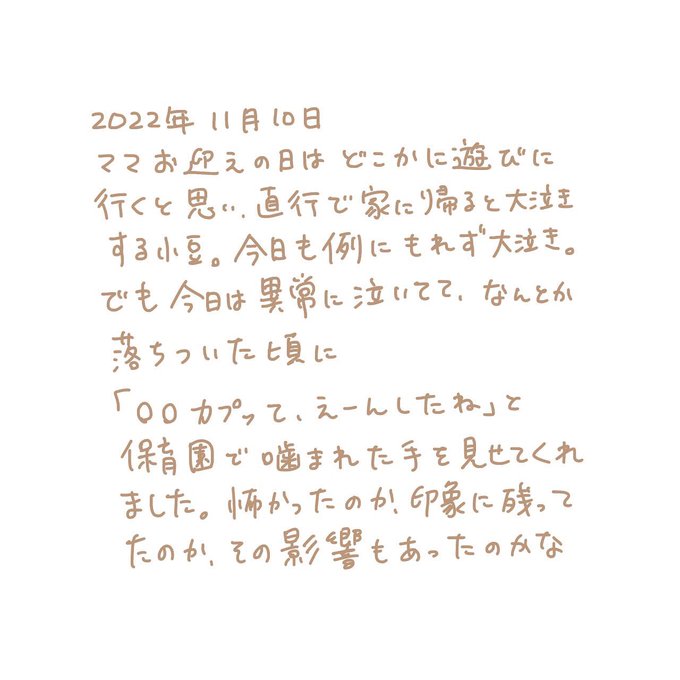 2022年 11月10日
ママお迎えの日は どこかに遊びに
行くと思い、直行で家に帰ると大泣き
する小豆。今日も例にもれず大泣き。
でも今日は異常に泣いてて、なんとか
落ちついた頃に
「〇〇カプッて、えーんしたね」と
保育園で噛まれた手を見せてくれ
ました。怖かったのか、印象に残って
たのか、その影響もあったのかな